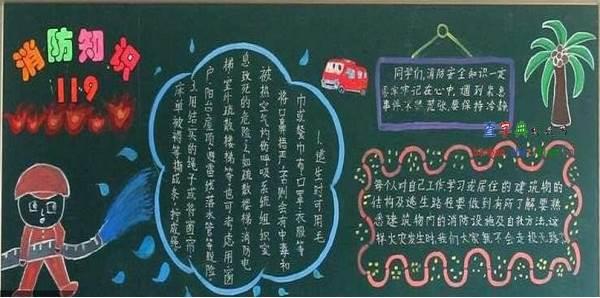 消防知识
119
1.逃生时可用毛
巾或餐巾布、口罩、衣服等
将口鼻捂严,否则会有中毒和
被热空气灼伤呼吸系统组织窒
息致死的危险。2.如疏散楼梯、消防电
梯、室外疏散楼梯等,也可考虑用窗
户、阳台、屋顶、避雷线、落水管等脱险.
3.用结实的绳子或将窗帘、
床单被褥等撕成条,拧成绳.
同学们,消防安全知识一定
要牢记在心中,遇到紧急
事件慌张,要保持冷静
每个人对自己工作学习或居住的建筑物的
结构及逃生路径要做到有所了解,要熟
悉建筑物内的消防设施及自救方法,这
样火灾发生时,我们大家就不会走投无路了.